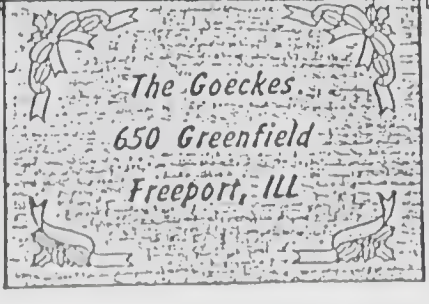 The Goeckes
650 Greenfield
Freeport, Ill